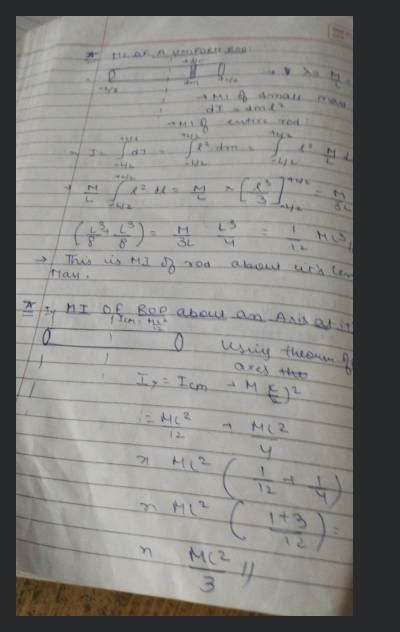 * MI OF A UNIFORM ROD:
-L/2 dm +L/2 → λ = M/L
→ MI of small mass
dI = dml²
→ MI of entire rod:
I = ∫ dI = ∫ l² dm = ∫ l² M/L
-L/2 +L/2 -L/2 +L/2 -L/2 +L/2
→ M/L ∫ l² dl = M/L × [l³/3] = M/3L
(L³/8 + L³/8) = M/3L L³/4 = 1/12 ML²
→ This is MI of rod about it's
Mass.
* MI OF ROD about an Axis at
Icm = ML²/12
Using theorem of
axes
I = Icm + M (L/2)²
= ML²/12 + ML²/4
= ML² (1/12 + 1/4)
= ML² (1+3/12) =
= ML²/3 //